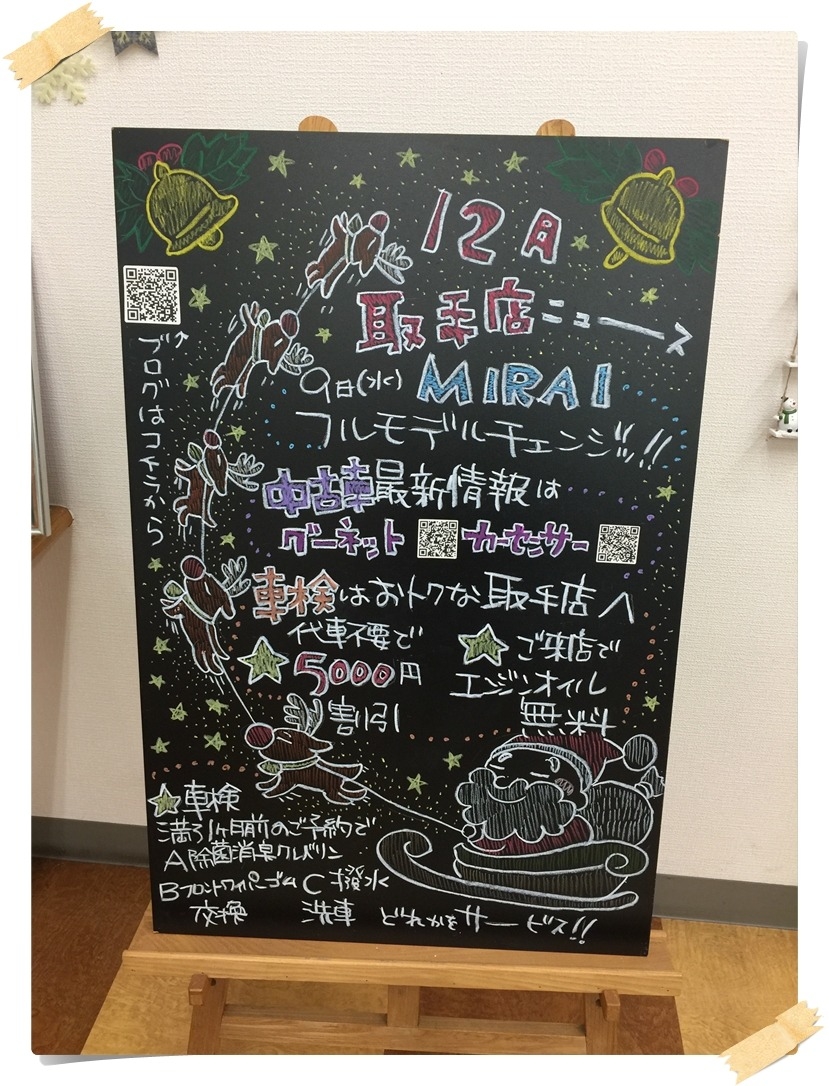 12月
取手店ニュース
9日(水) MIRAI
フルモデルチェンジ!!
ブログはコチラから
中古車最新情報は
グーネット カーセンサー
車検はおトクな取手店へ
代車不要で
5000円
割引
ご来店で
エンジンオイル
無料
車検
満了1ヶ月前のご予約で
A除菌消臭クレベリン
Bフロントワイパーゴム
交換
C撥水
洗車
どれかをサービス!!